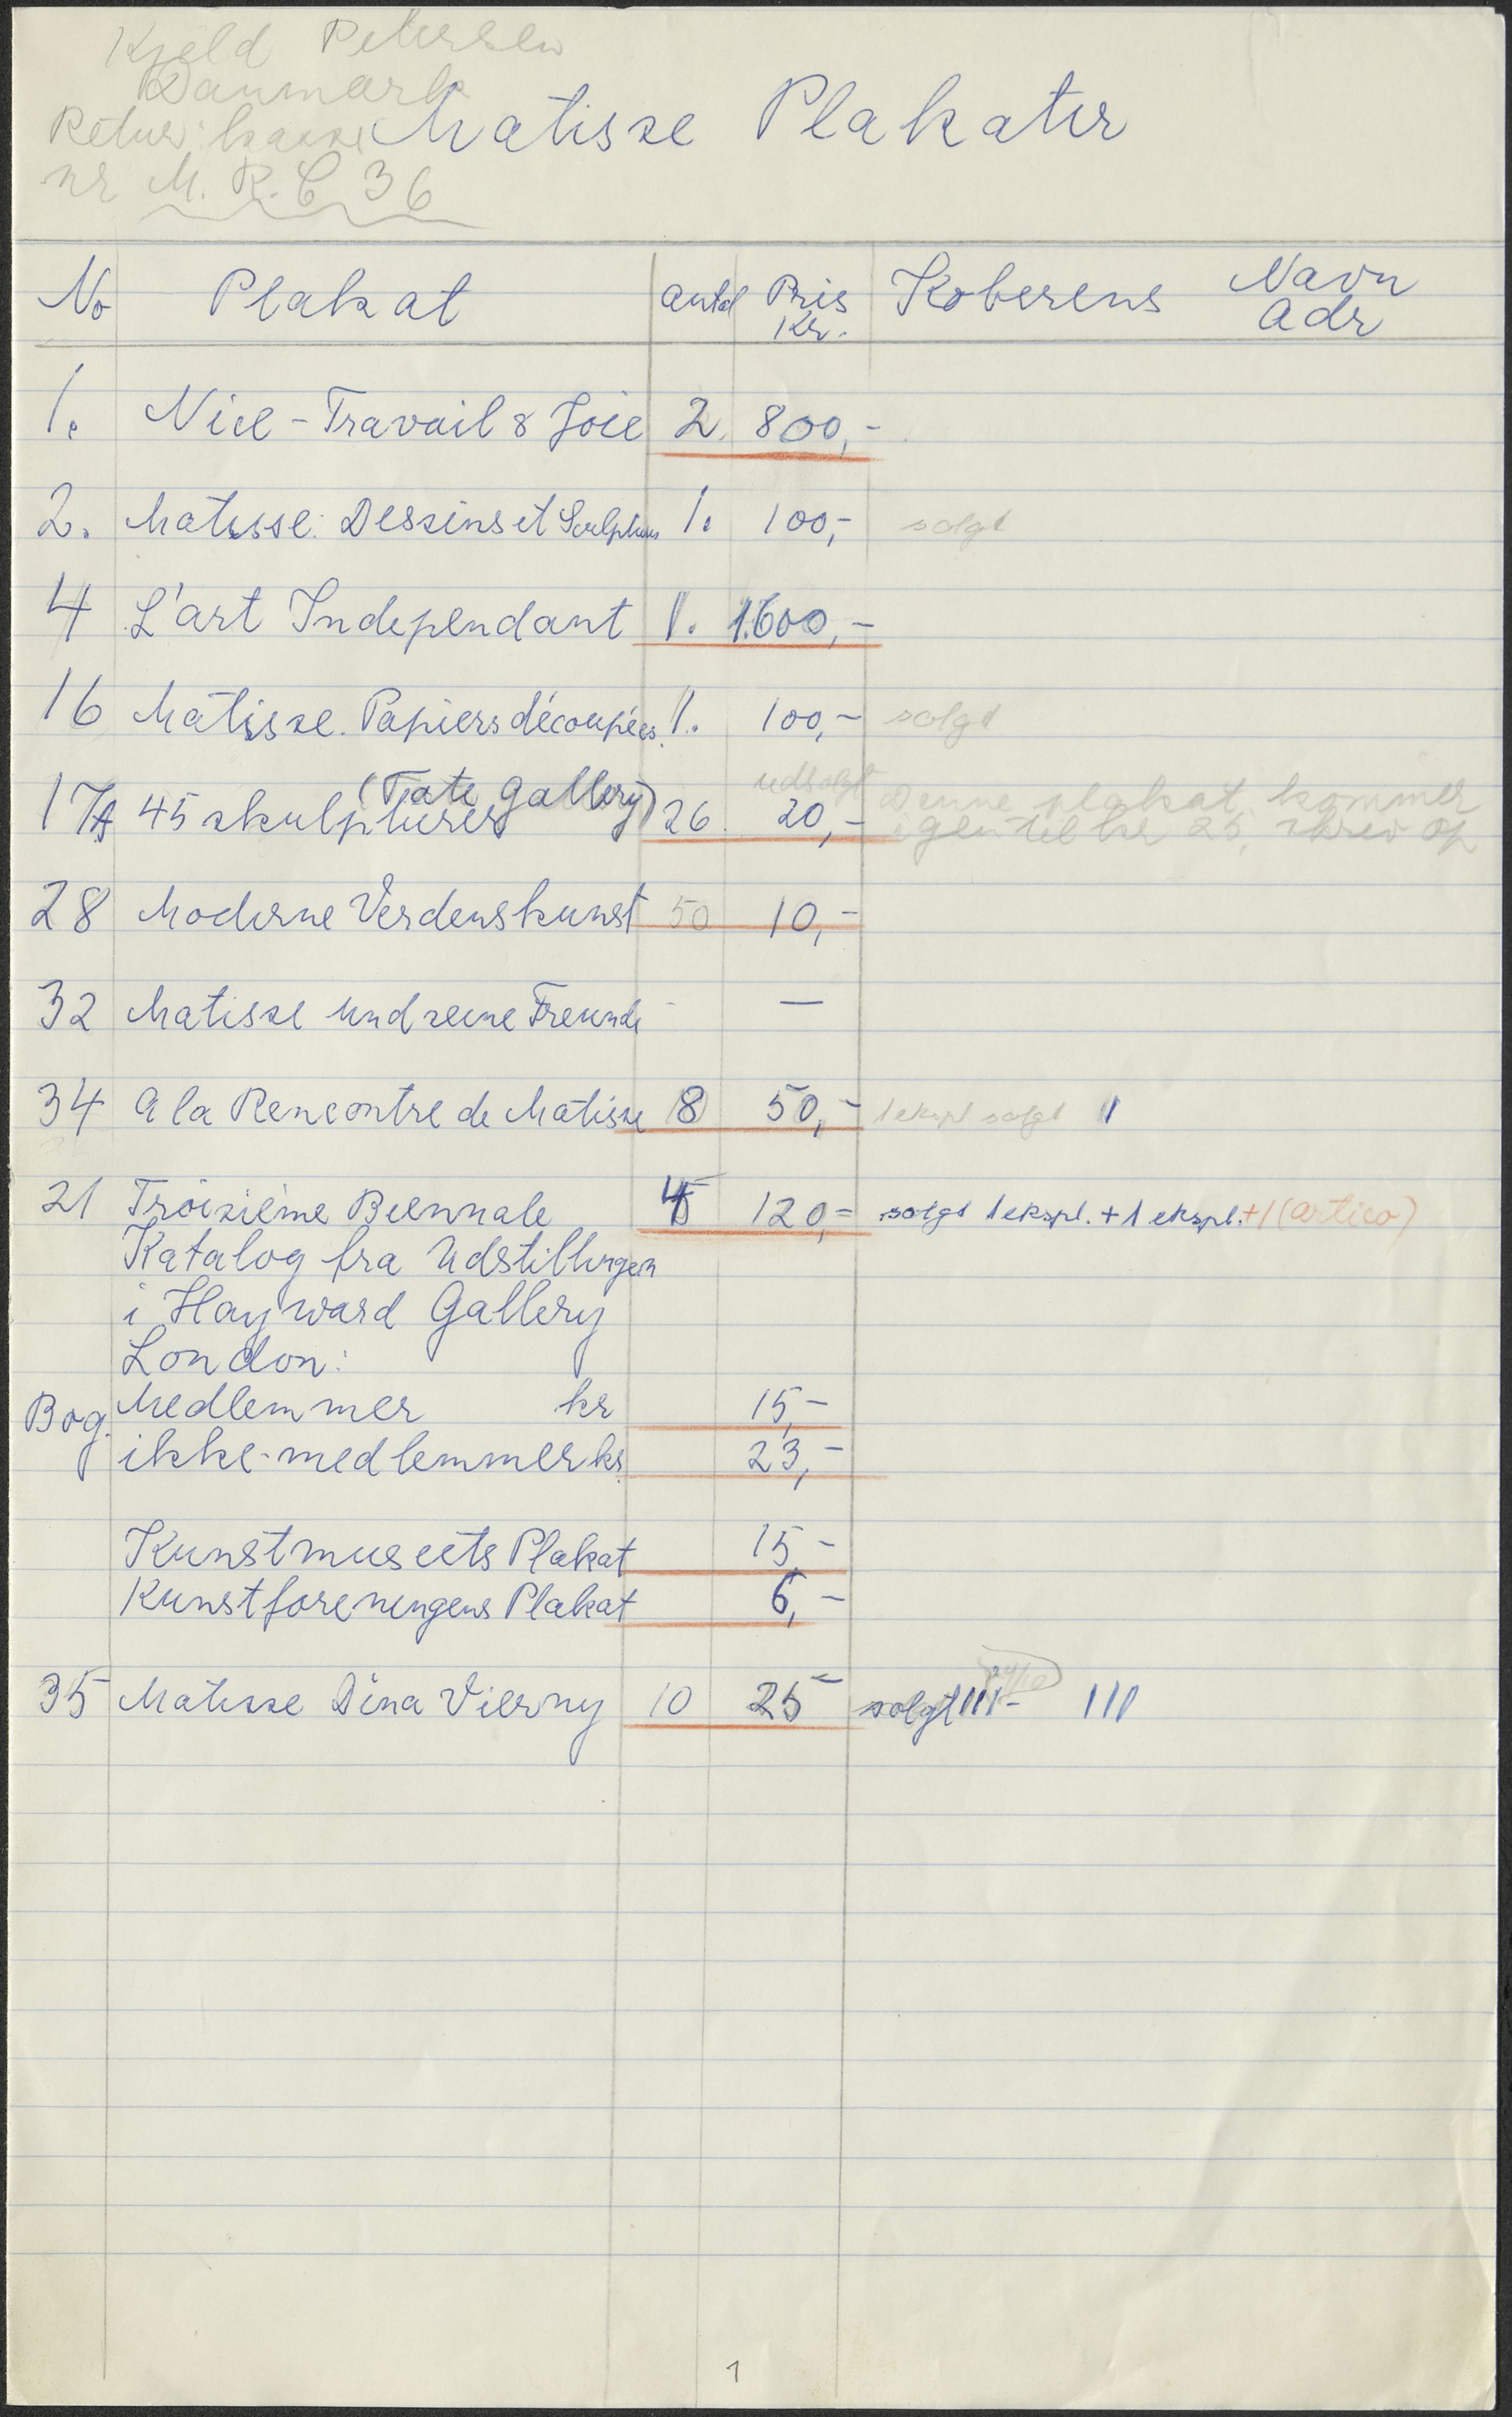 Kjeld Petersen
Danmark
Retur: kasse
nr M. R. C 36
Matisse Plakater
No Plakat antal Pris Kr. Køberens Navn Adr
1. Nice - Travail & Joie 2. 800,-
2. Matisse: Dessins et Sculptures 1. 100,- solgt
4 L'art Independant 1. 1.600,-
16 Matisse. Papiers découpées. 1. 100,- solgt
(Tate Gallery) udsolgt Denne plakat kommer
17A 45 skulpturer 26. 20,- igen til kr 25, skriv op
28 Moderne Verdenskunst 50 10,-
32 Matisse und seine Freunde - —
34 A la Rencontre de Matisse 8 50,- 1 ekspl. solgt 1
21 Troisième Biennale 120,- solgt 1 ekspl. + 1 ekspl. +1 (artico)
Katalog fra Udstillingen
i Hayward Gallery
London:
Bog. Medlemmer kr 15,-
ikke-medlemmer kr. 23,-
Kunstmuseets Plakat 15,-
Kunstforeningens Plakat 6,-
35 Matisse Dina Vierny 10 25- solgt III- III
1